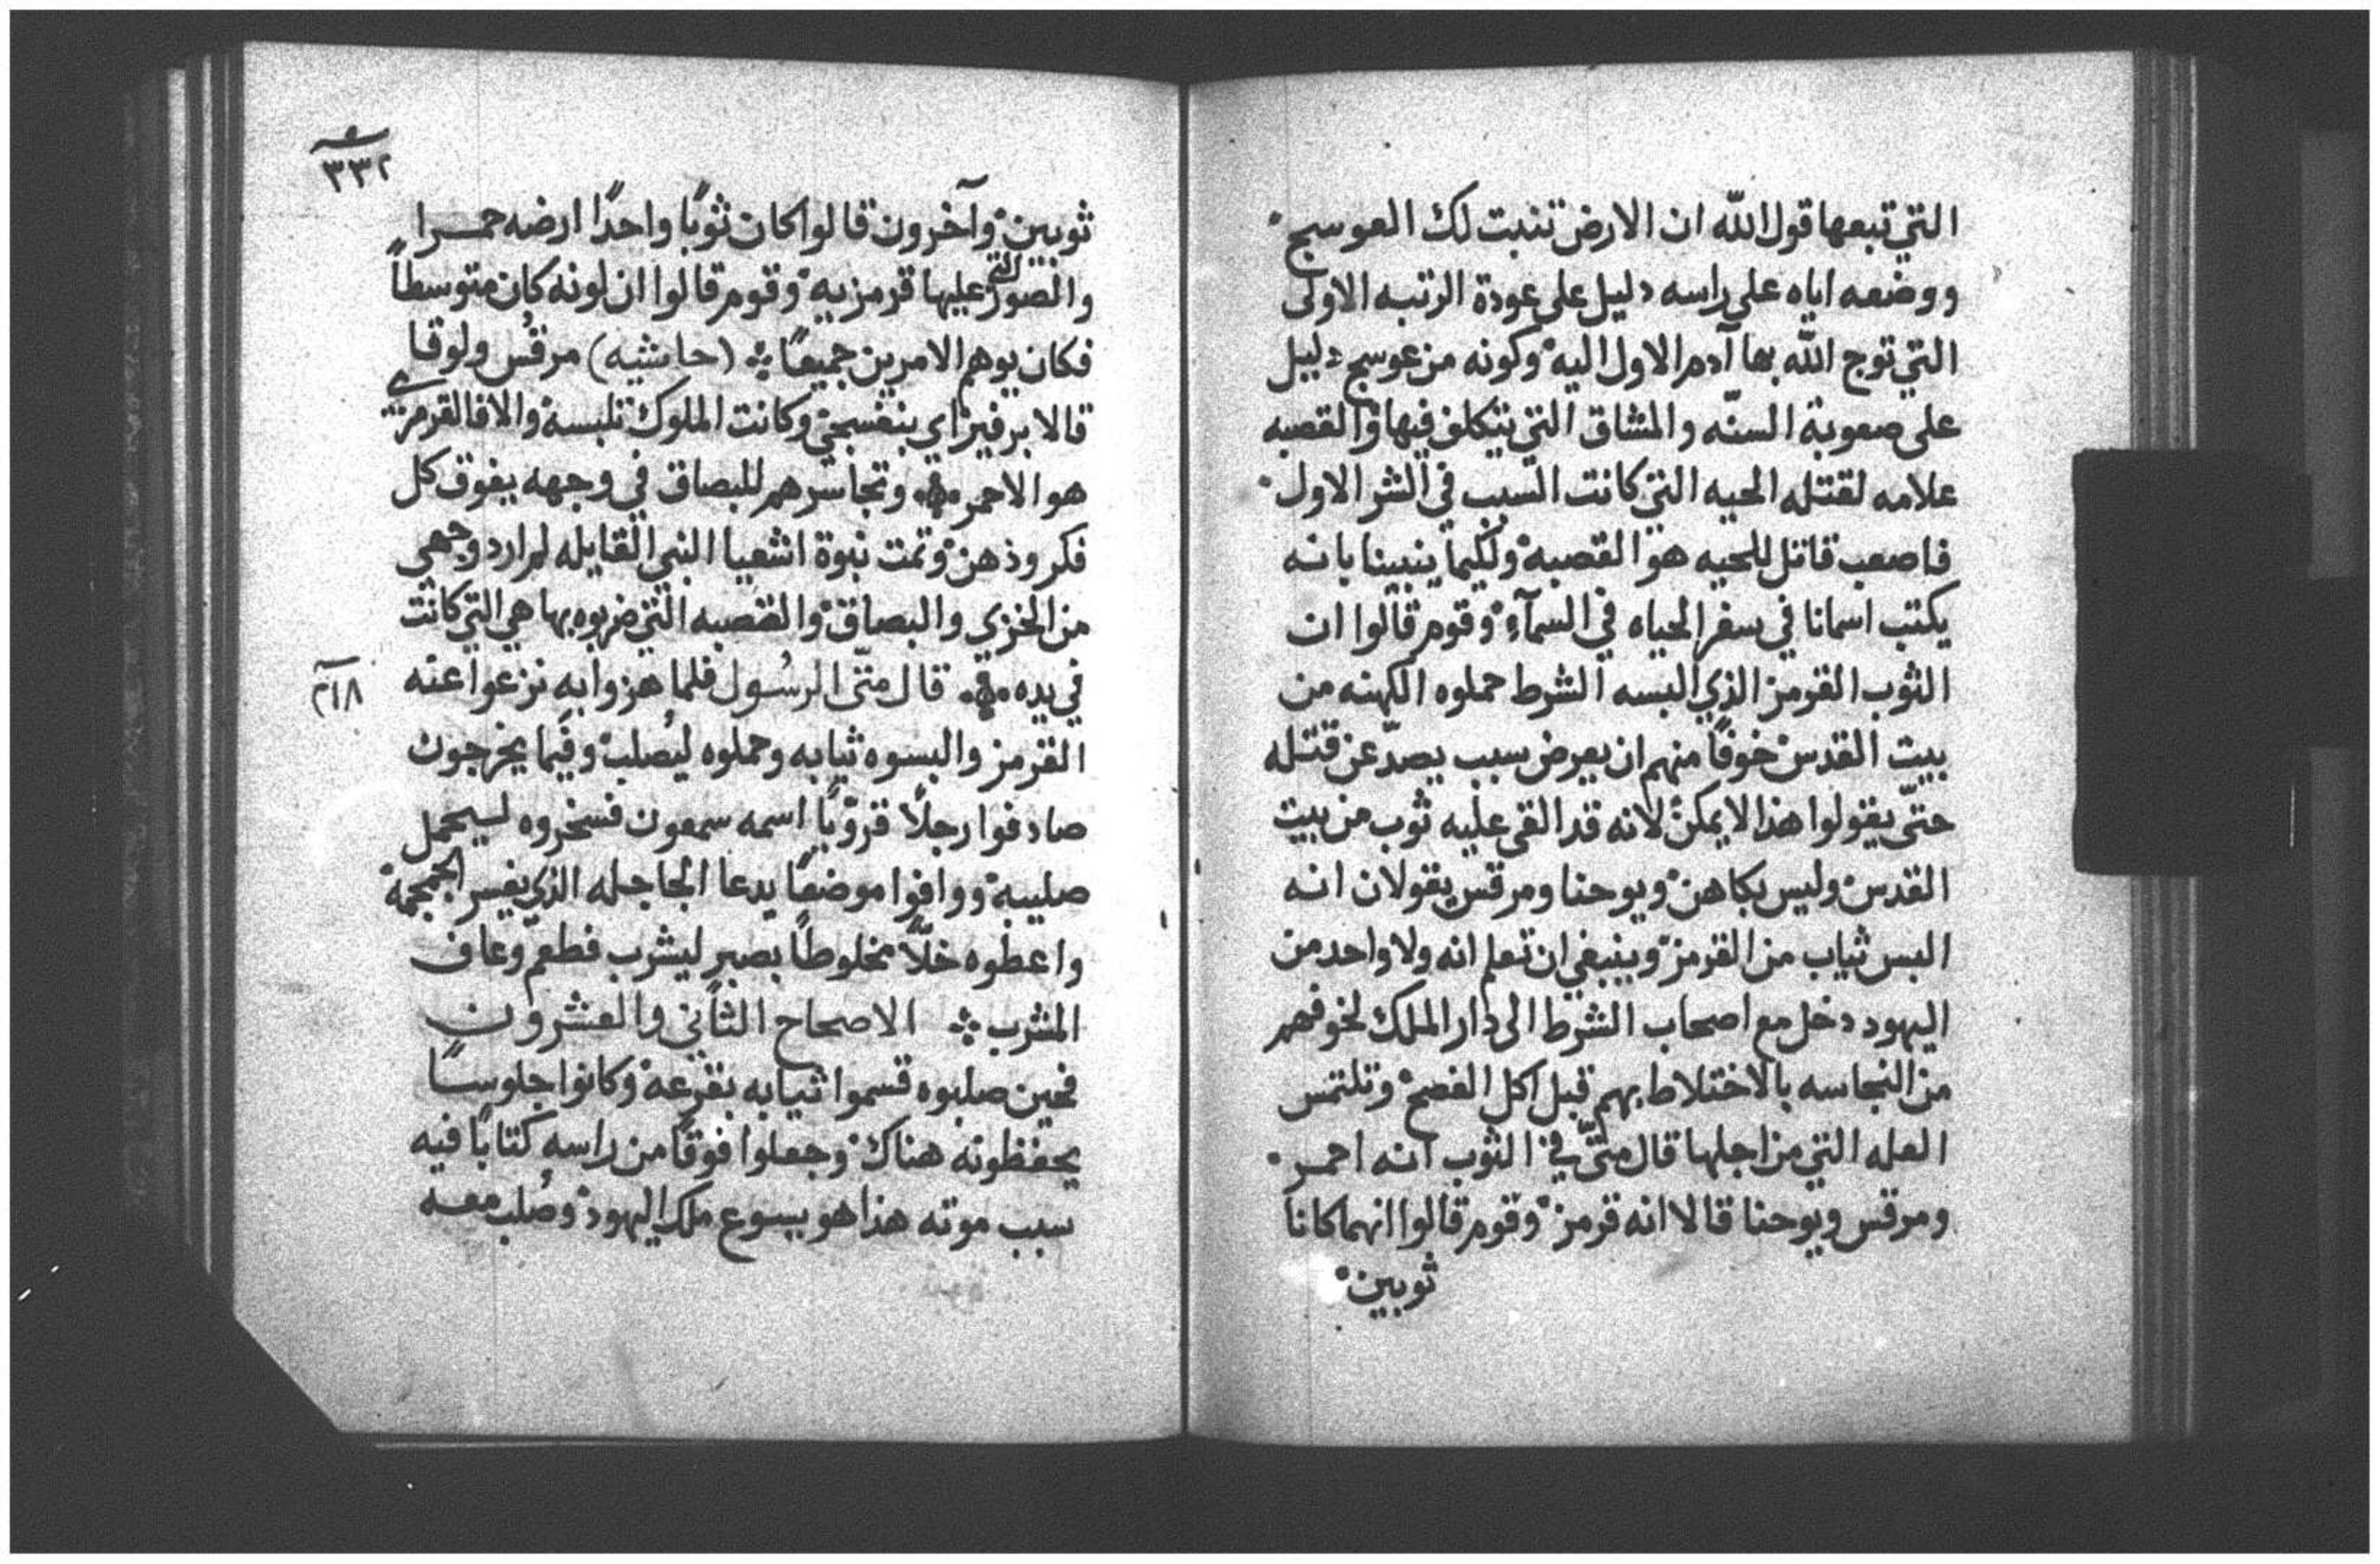 التي تبعها قول الله ان الارض تنبت لك العوسج
ووضعه اياه على راسه دليل على عودة الرتبه الاولى
التي توج الله بها آدم الاول اليه وكونه من عوسج دليل
على صعوبة السنّه والمشاق التي يتكلف فيها والقصبه
علامه لقتله الحيه التي كانت السبب في الشر الاول
فاصعب قاتل للحيه هو القصبه ولكيما ينبينا بانه
يكتب اسمانا في سفر الحياه في السمآء وقوم قالوا ان
الثوب القرمز الذي البسه الشرط حملوه الكهنه من
بيت القدس خوفًا منهم ان يعرض سبب يصدّ عن قتله
حتّى يقولوا هذا لا يمكن لانه قد القى عليه ثوب من بيت
القدس وليس بكاهن ويوحنا ومرقس يقولان انه
البس ثياب من القرمز وينبغي ان تعلم انه ولا واحد من
اليهود دخل مع اصحاب الشرط الى دار الملك لخوفهم
من النجاسه بالاختلاط بهم قبل اكل الفصح وتلتمس
العله التي من اجلها قال متّى في الثوب انه احمر
ومرقس ويوحنا قالا انه قرمز وقوم قالوا انهما كانا
ثوبين
٣٣٢
ثوبين وآخرون قالوا كان ثوبًا واحدًا ارضه حمرا
والصور التي عليها قرمزيه وقوم قالوا ان لونه كان متوسطاً
فكان يوهم الامرين جميعًا (حاشيه) مرقس ولوقا
قالا برفير اي بنفسجي وكانت الملوك تلبسه والا فالقرمزي
هو الاحمر وتجاسرهم للبصاق في وجهه يفوق كل
فكر وذهن وتمت نبوة اشعيا النبي القايله لم ارد وجهي
من الخزي والبصاق والقصبه التي ضربوه بها هي التي كانت
في يده قال متّى الرسُول فلما هزوا به نزعوا عنه
القرمز والبسوه ثيابه وحملوه ليُصلب وفيما يخرجون
صادفوا رجلًا قروّيًا اسمه سمعون فسخروه ليحمل
صليبه ووافوا موضعًا يدعا الجاجله الذي يفسر الجمجمة
واعطوه خلّاً مخلوطاً بصبر ليشرب فطعم وعاف
المشرب الاصحاح الثاني والعشرون
فحين صلبوه قسموا ثيابه بقرعه وكانوا جلوسًا
يحفظونه هناك وجعلوا فوقًا من راسه كتابًا فيه
سبب موته هذا هو يسوع ملك اليهود وصُلب معه